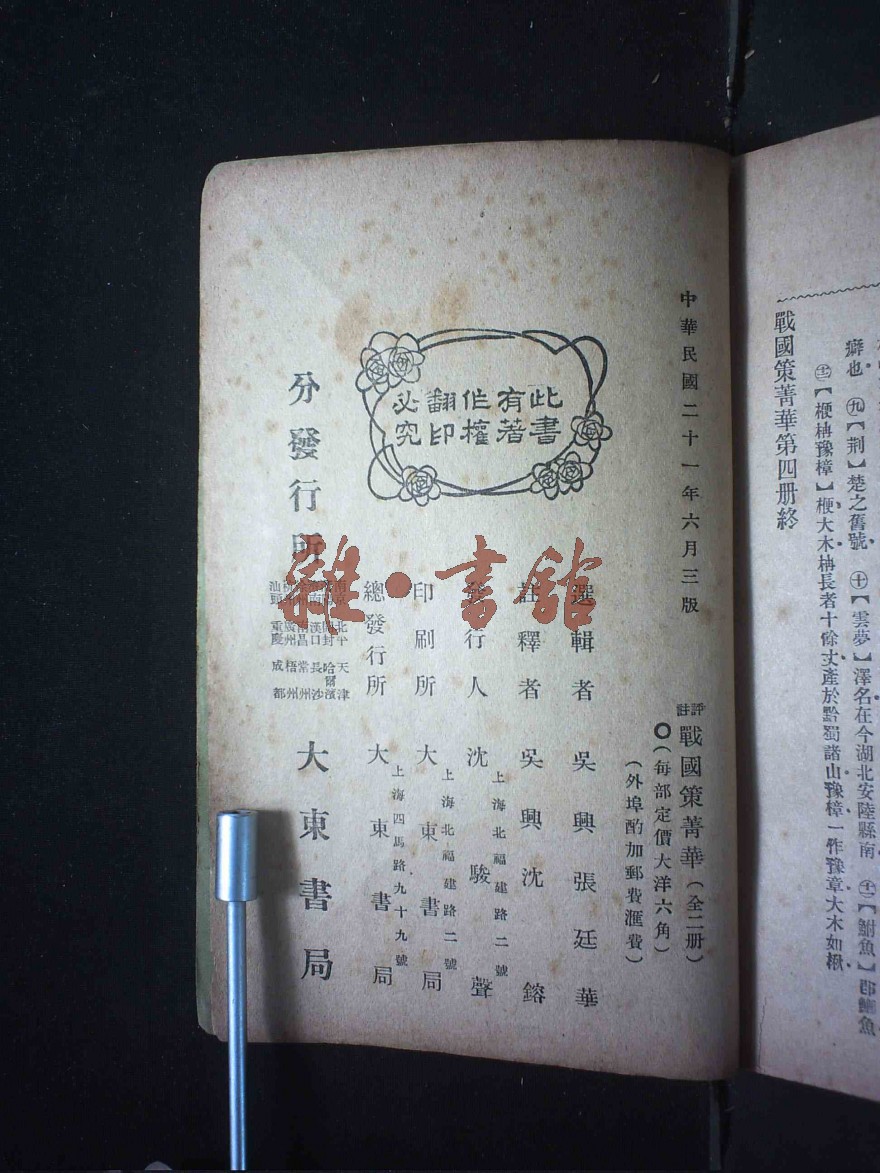 癖也 ㊈【荆】楚之舊號 ㊉【雲夢】澤名在今湖北安陸縣南 【鮒魚】卽鰂魚
【楩枏豫樟】楩大木枏長者十餘丈產於黔蜀諸山豫樟一作豫章大木如楸
戰國策菁華第四册終
中華民國二十一年六月三版
評註戰國策菁華(全二册)
(每部定價大洋六角)
(外埠酌加郵費滙費)
此書
有著
作權
翻印
必究
選輯者 吳興張廷華
註釋者 吳興沈鎔
上海北福建路二號
發行人 沈駿聲
上海北福建路二號
印刷所 大東書局
上海四馬路九十九號
總發行所 大東書局
北平 天津
開封 哈爾濱
漢口 長沙
南昌 常州
廣州 梧州
汕頭 重慶 成都
分發行所 大東書局
雜·書館